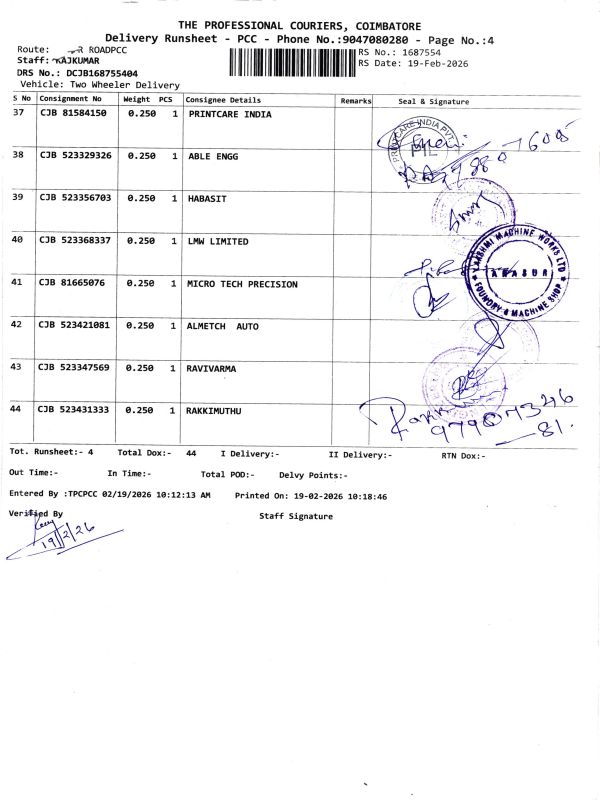 THE PROFESSIONAL COURIERS, COIMBATORE
Delivery Runsheet - PCC - Phone No.:9047080280 - Page No.:4
Route: R ROADPCC
RS No.: 1687554
Staff: RAJKUMAR
RS Date: 19-Feb-2026
DRS No.: DCJB168755404
Vehicle: Two Wheeler Delivery
S No Consignment No Weight PCS Consignee Details Remarks Seal & Signature
37 CJB 81584150 0.250 1 PRINTCARE INDIA
PRINTCARE INDIA PVT
38 CJB 523329326 0.250 1 ABLE ENGG
39 CJB 523356703 0.250 1 HABASIT
40 CJB 523368337 0.250 1 LMW LIMITED
LAKSHMI MACHINE WORKS LTD
ARASUR
FOUNDRY & MACHINE SHOP
41 CJB 81665076 0.250 1 MICRO TECH PRECISION
42 CJB 523421081 0.250 1 ALMETCH AUTO
43 CJB 523347569 0.250 1 RAVIVARMA
44 CJB 523431333 0.250 1 RAKKIMUTHU
97907346
81.
Tot. Runsheet:- 4 Total Dox:- 44 I Delivery:- II Delivery:- RTN Dox:-
Out Time:- In Time:- Total POD:- Delvy Points:-
Entered By :TPCPCC 02/19/2026 10:12:13 AM Printed On: 19-02-2026 10:18:46
Verified By Staff Signature
19/2/26